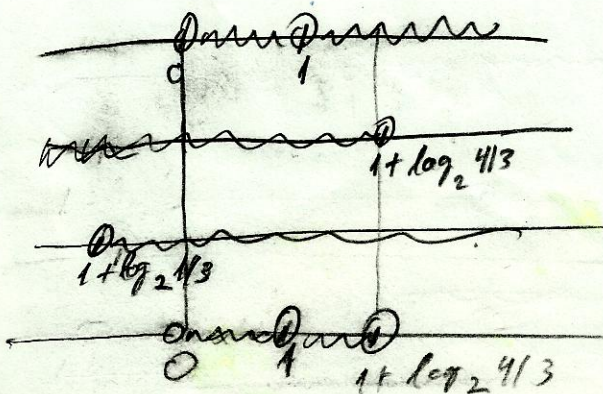 0 1
1 + log₂ 4/3
1 + log₂ 1/3
0 1 1 + log₂ 4/3